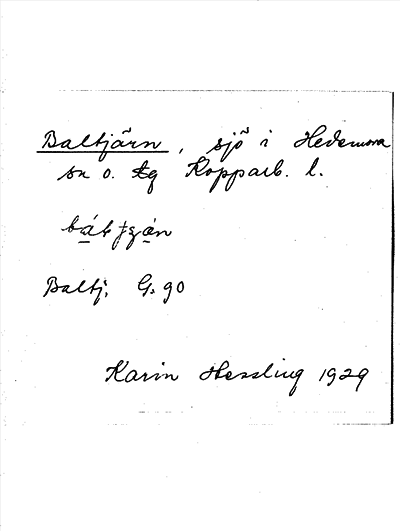 Baltjärn, sjö i Hedemora
sn o. tg Kopparb. l.
Baltj. G. 90
Karin Hessling 1929